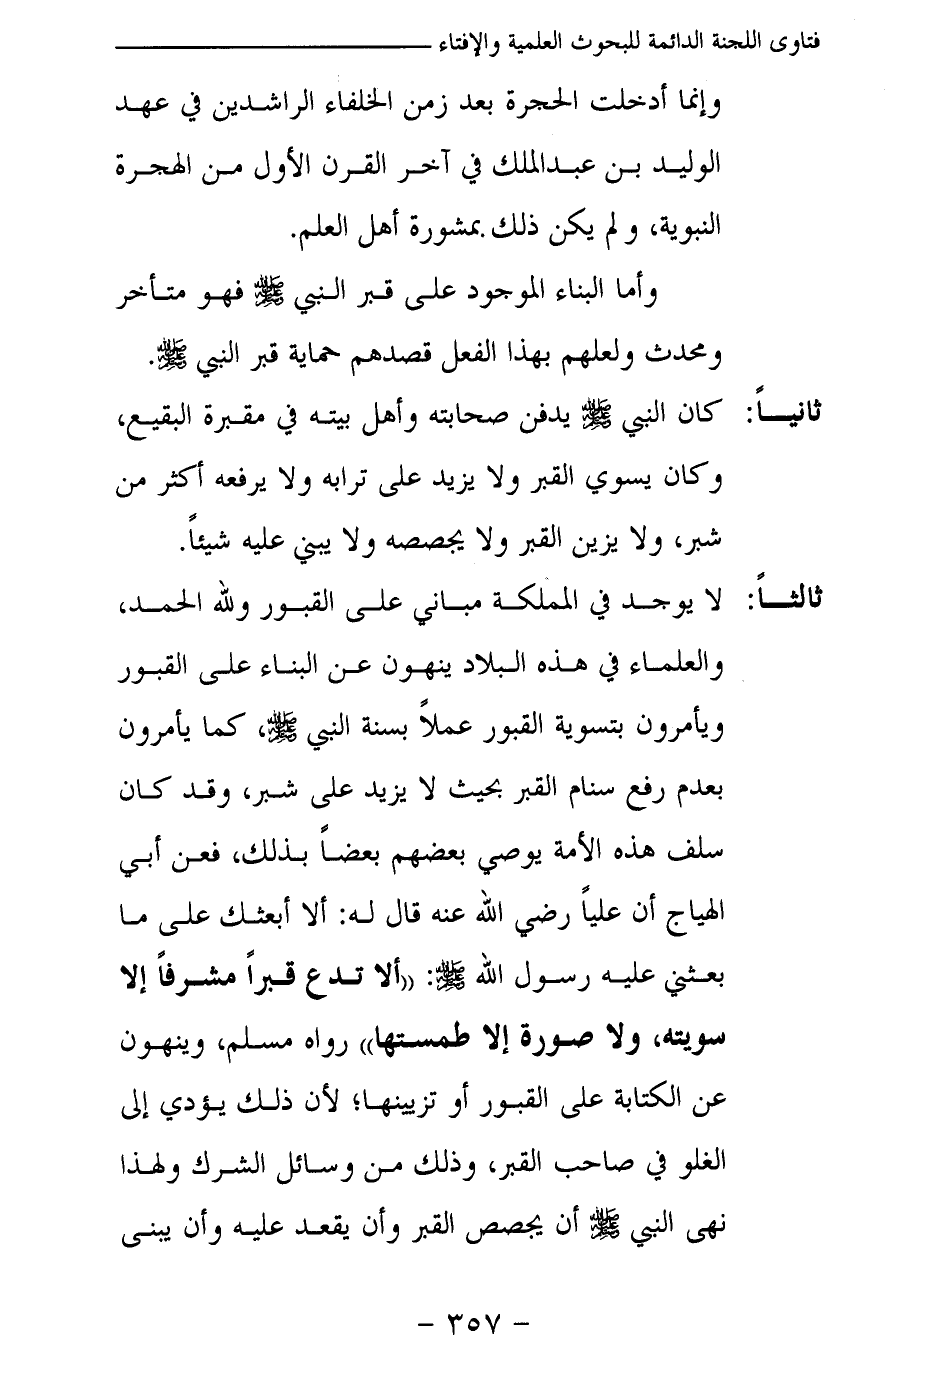 فتاوى اللجنة الدائمة للبحوث العلمية والإفتاء
وإنما أدخلت الحجرة بعد زمن الخلفاء الراشدين في عهد
الوليد بن عبدالملك في آخر القرن الأول من الهجرة
النبوية، و لم يكن ذلك بمشورة أهل العلم.
وأما البناء الموجود على قبر النبي ﷺ فهو متأخر
ومحدث ولعلهم بهذا الفعل قصدهم حماية قبر النبي ﷺ.
ثانياً: كان النبي ﷺ يدفن صحابته وأهل بيته في مقبرة البقيع،
وكان يسوي القبر ولا يزيد على ترابه ولا يرفعه أكثر من
شبر، ولا يزين القبر ولا يجصصه ولا يبني عليه شيئاً.
ثالثاً: لا يوجد في المملكة مباني على القبور ولله الحمد،
والعلماء في هذه البلاد ينهون عن البناء على القبور
ويأمرون بتسوية القبور عملاً بسنة النبي ﷺ، كما يأمرون
بعدم رفع سنام القبر بحيث لا يزيد على شبر، وقد كان
سلف هذه الأمة يوصي بعضهم بعضاً بذلك، فعن أبي
الهياج أن علياً رضي الله عنه قال له: ألا أبعثك على ما
بعثني عليه رسول الله ﷺ: ((ألا تدع قبراً مشرفاً إلا
سويته، ولا صورة إلا طمستها)) رواه مسلم، وينهون
عن الكتابة على القبور أو تزيينها؛ لأن ذلك يؤدي إلى
الغلو في صاحب القبر، وذلك من وسائل الشرك ولهذا
نهى النبي ﷺ أن يجصص القبر وأن يقعد عليه وأن يبنى
- ٣٥٧ -